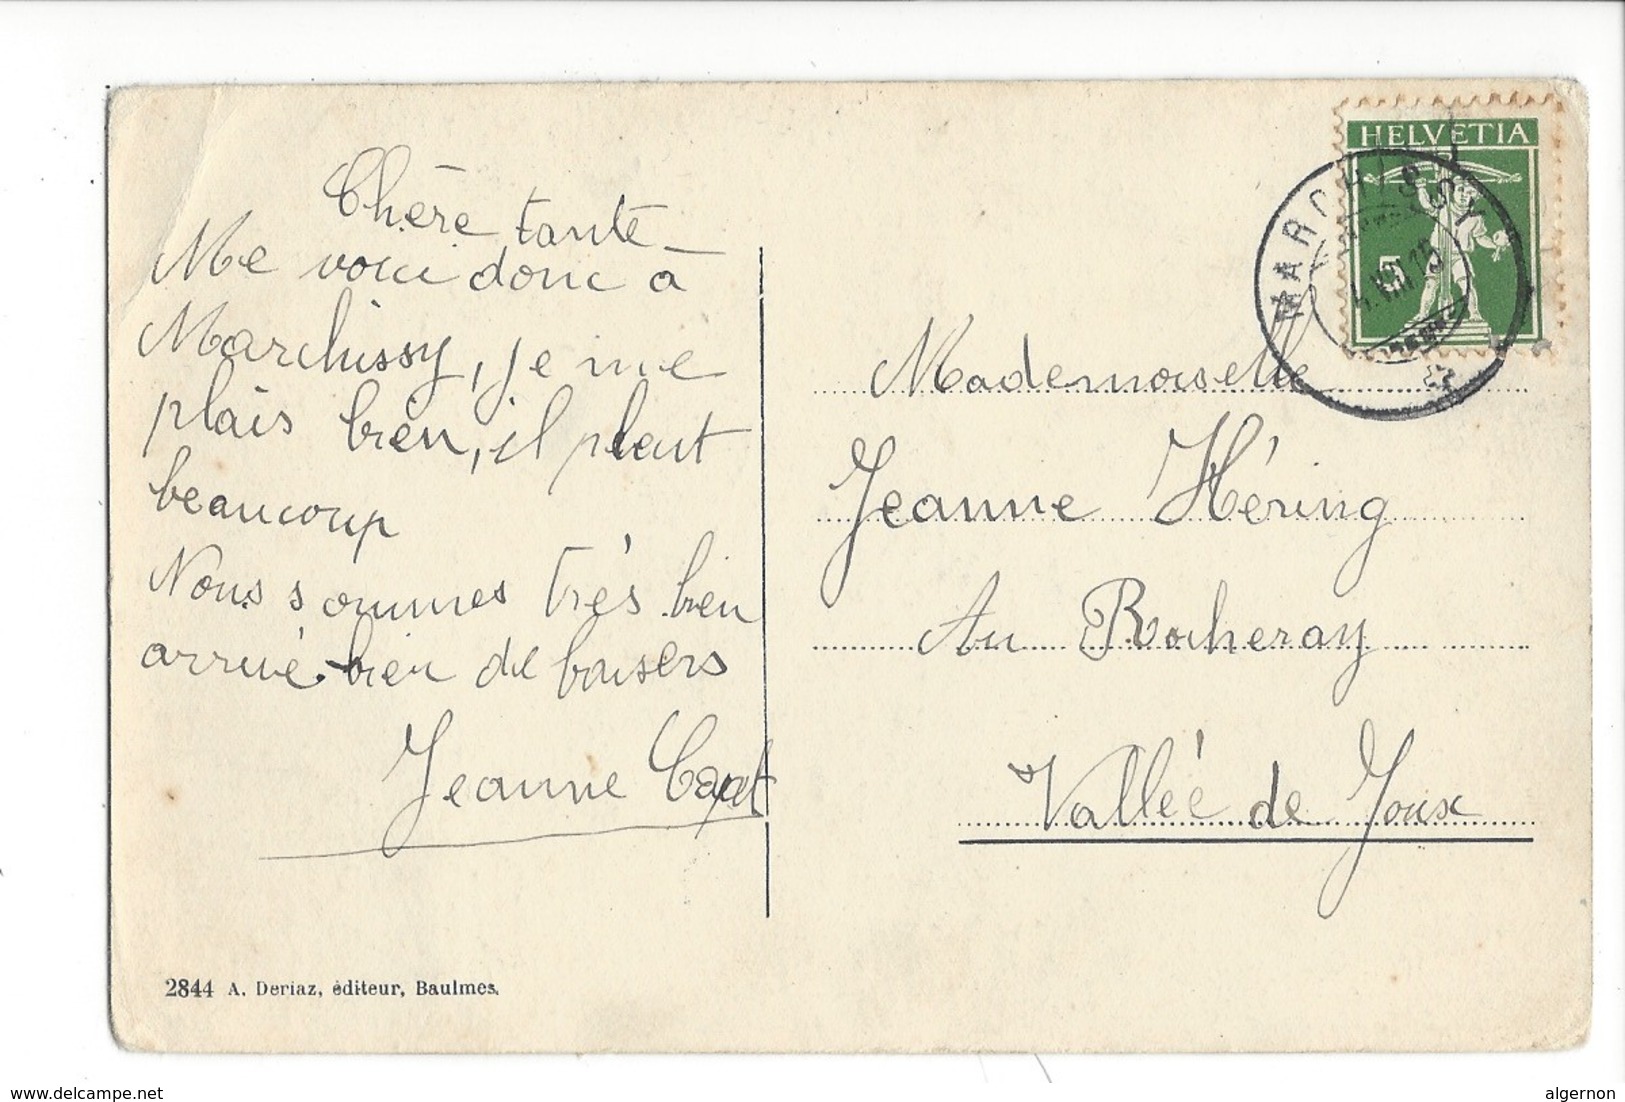 Chère tante
Me voici donc à
Marchissy, je me
plais bien, il pleut
beaucoup
Nous sommes très bien
arrivé. bien de baisers
Jeanne Capt
2844 A. Deriaz, éditeur, Baulmes.
HELVETIA
5
MARCHISSY
VIII 15
Mademoiselle
Jeanne Héring
Au Rocheray
Vallée de Joux
www.delcampe.net
algernon